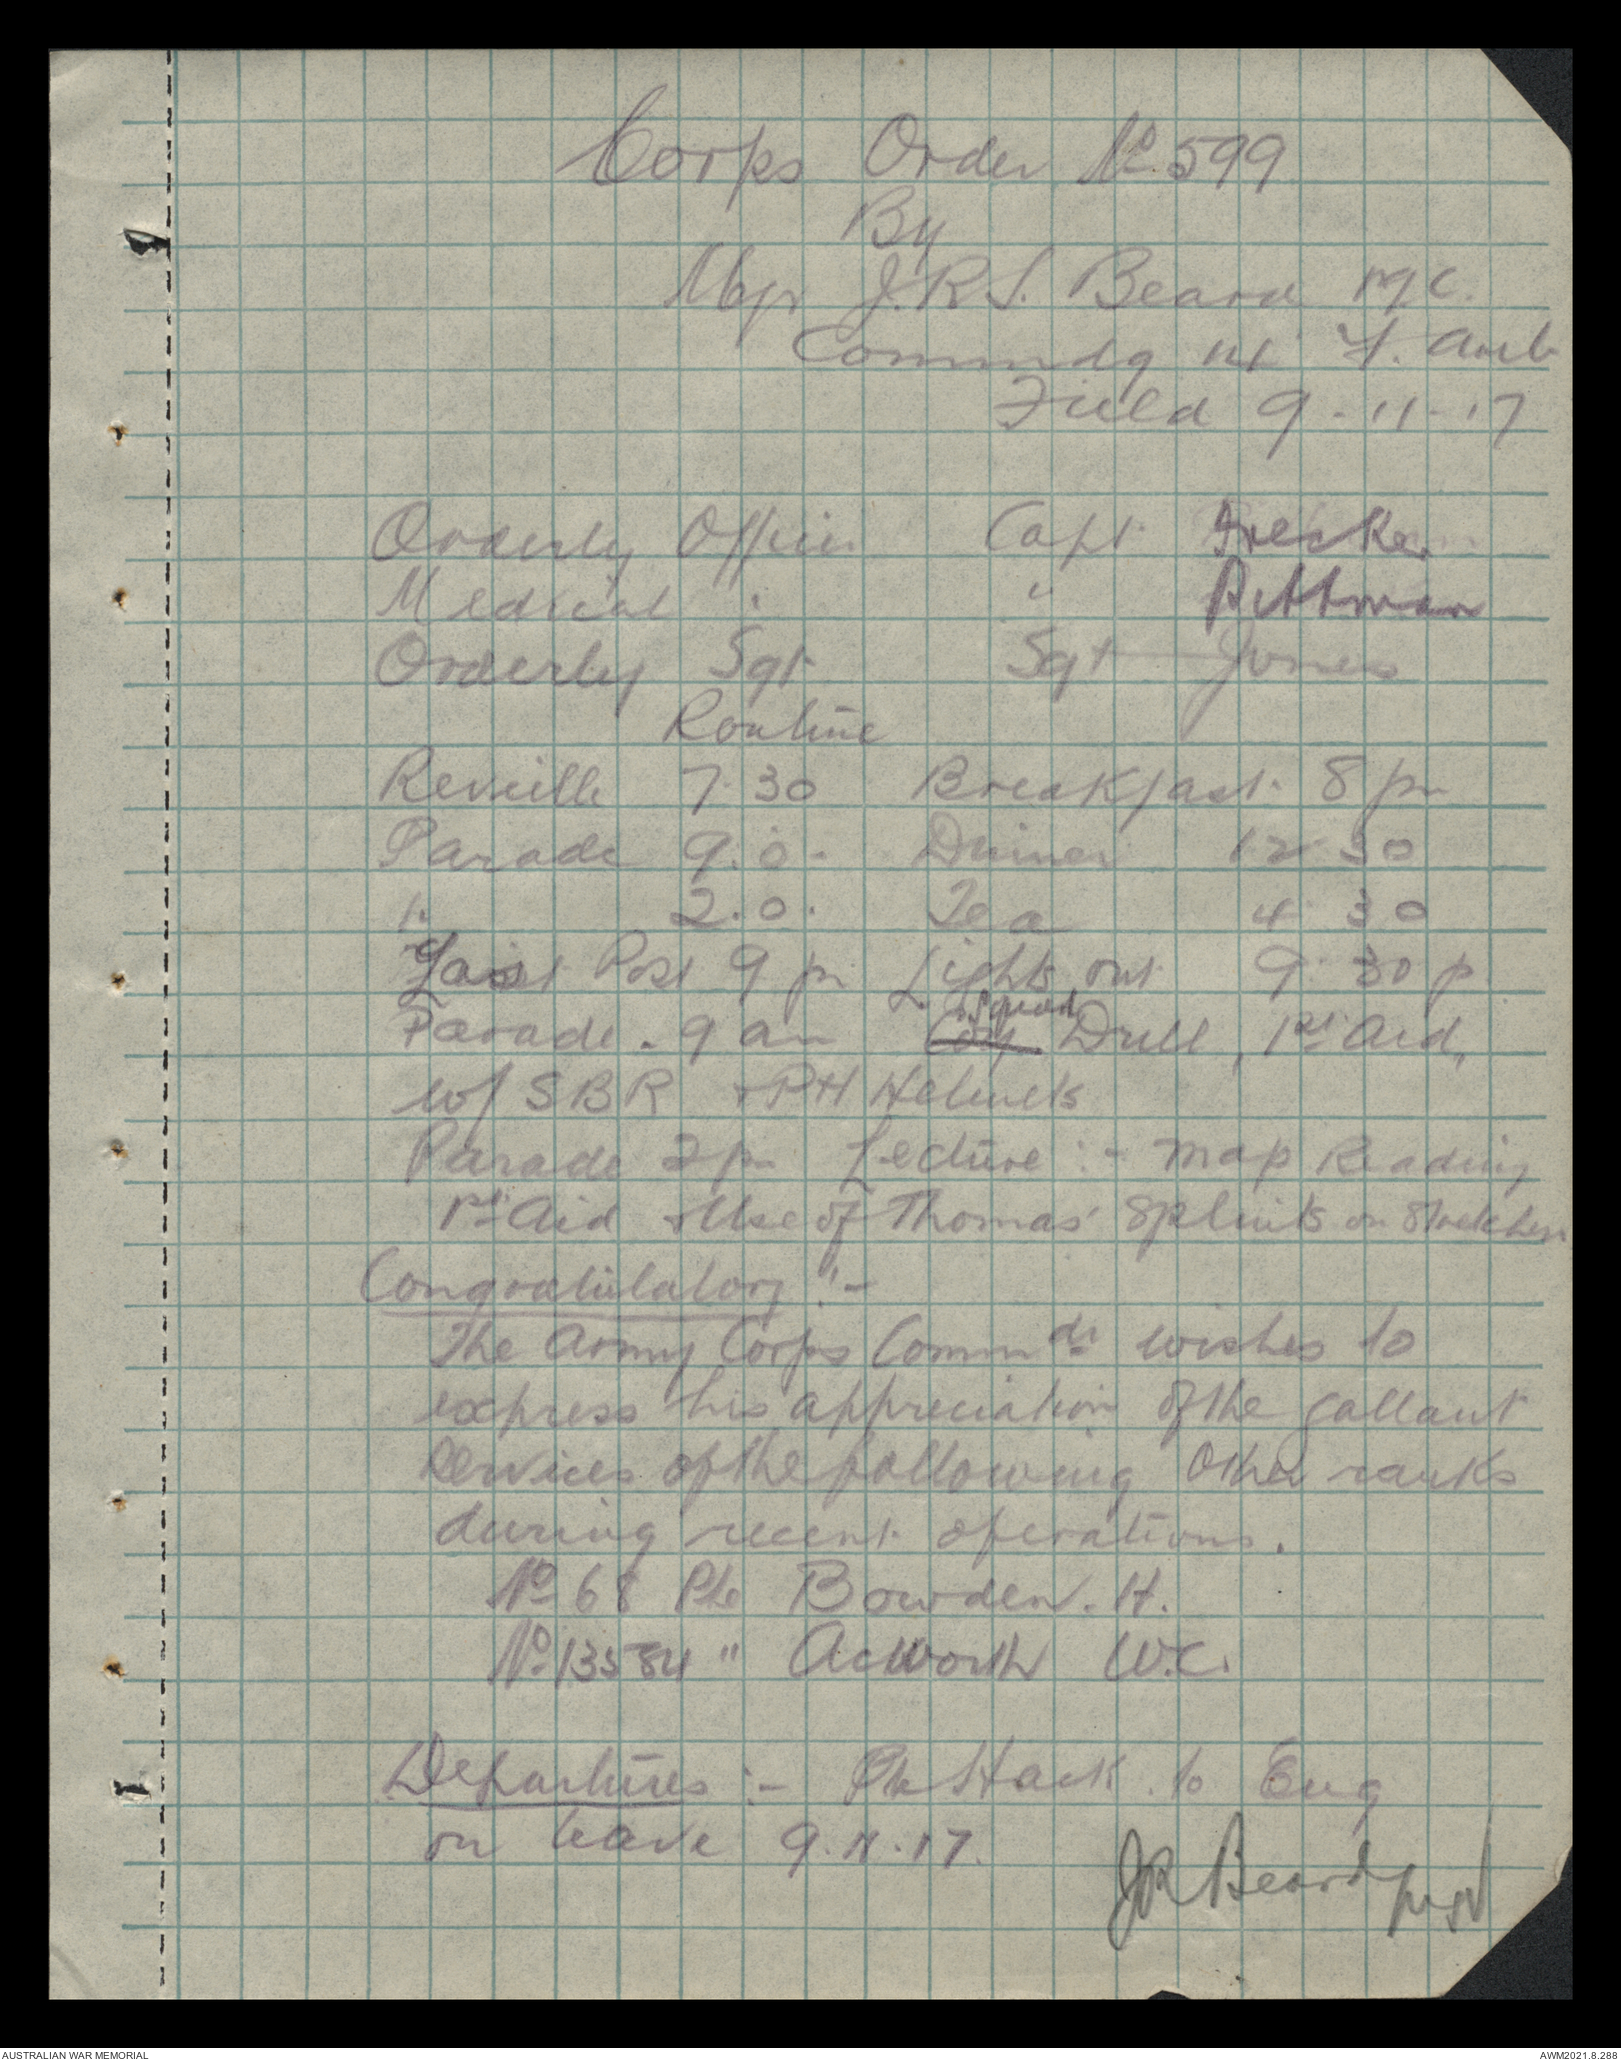 Corps Order No. 599
By
Major J.R.S. Beard M.C.
Commdg 14 F. Amb
Field 9-11-17
Orderly Officer Capt Trecker
Medical " " Pittman
Orderly Sgt Sgt Jones
Routine
Reveille 7.30 Breakfast 8 pm
Parade 9.0. Dinner 12.30
" 2.0. Tea 4.30
Last Post 9 pm Lights out 9.30 p
Parade. 9 am Coy Squad Drill, 1st Aid,
w/ SBR + PH Helmets
Parade 2 pm Lecture :- Map Reading
1st Aid + Use of Thomas' Splints on Stretcher
Congratulatory :-
The Army Corps Commdr wishes to
express his appreciation of the gallant
services of the following Other ranks
during recent operations.
No 68 Pte Bowden. H.
No. 13584 " Acworth W.C.
Departures :- Pte Hack to Eng
on leave 9.11.17.
JR Beard
AUSTRALIAN WAR MEMORIAL AWM2021.8.288